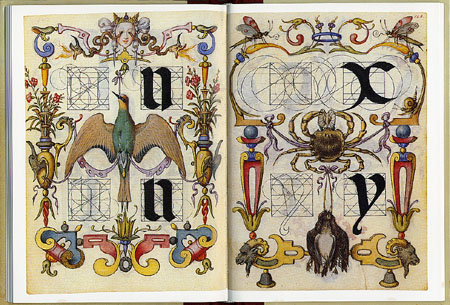 u
u
x
y